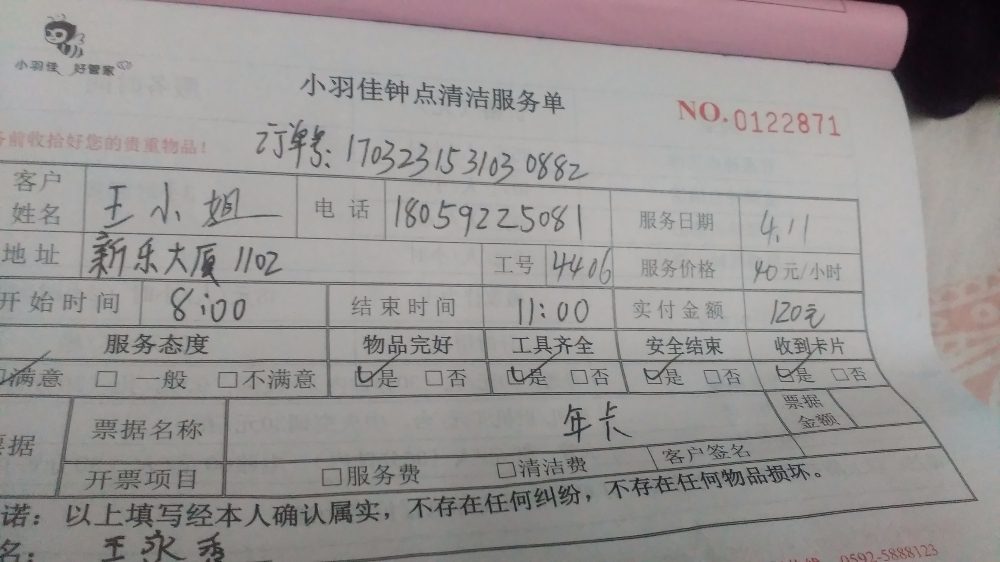 小羽佳 好管家
小羽佳钟点清洁服务单
NO.0122871
务前收拾好您的贵重物品!
订单号:1703231531030882
客户姓名 王小姐 电话 18059225081 服务日期 4.11
地址 新乐大厦1102 工号 4406 服务价格 40元/小时
开始时间 8:00 结束时间 11:00 实付金额 120元
服务态度 物品完好 工具齐全 安全结束 收到卡片
☑满意 □一般 □不满意 ☑是 □否 ☑是 □否 ☑是 □否 ☑是 □否
票据 票据名称 年卡 票据金额
开票项目 □服务费 □清洁费 客户签名
诺:以上填写经本人确认属实,不存在任何纠纷,不存在任何物品损坏。
名:王永秀
0592-5888123